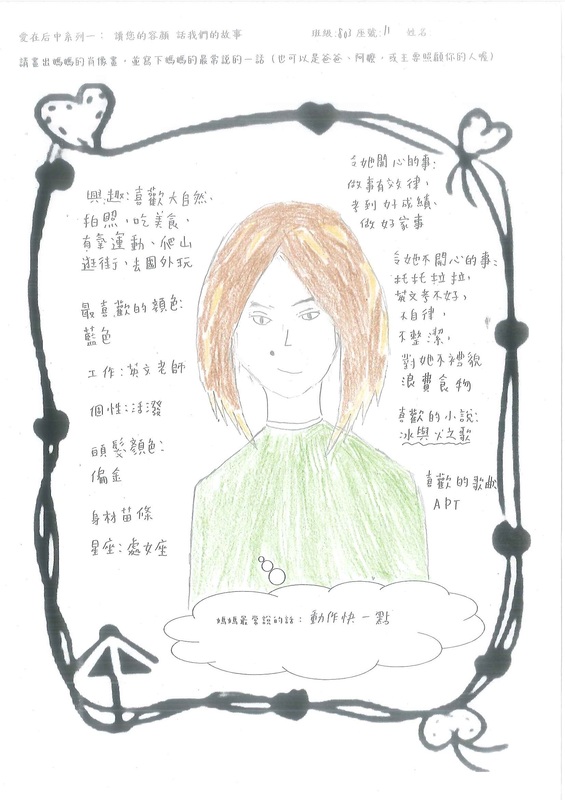 愛在后中系列一： 讀您的容顏 話我們的故事 班級:803 座號:11 姓名
請畫出媽媽的肖像畫，並寫下媽媽的最常說的一話（也可以是爸爸、阿嬤，或主要照顧你的人喔）
興趣:喜歡大自然、
拍照、吃美食、
有氧運動、爬山
逛街、去國外玩
最喜歡的顏色:
藍色
工作:英文老師
個性:活潑
頭髮顏色:
偏金
身材苗條
星座:處女座
令她開心的事:
做事有效律、
考到好成績、
做好家事
令她不開心的事:
托托拉拉、
英文考不好、
不自律、
不整潔、
對她不禮貌
浪費食物
喜歡的小說:
冰與火之歌
喜歡的歌曲
APT
媽媽最常說的話：動作快一點